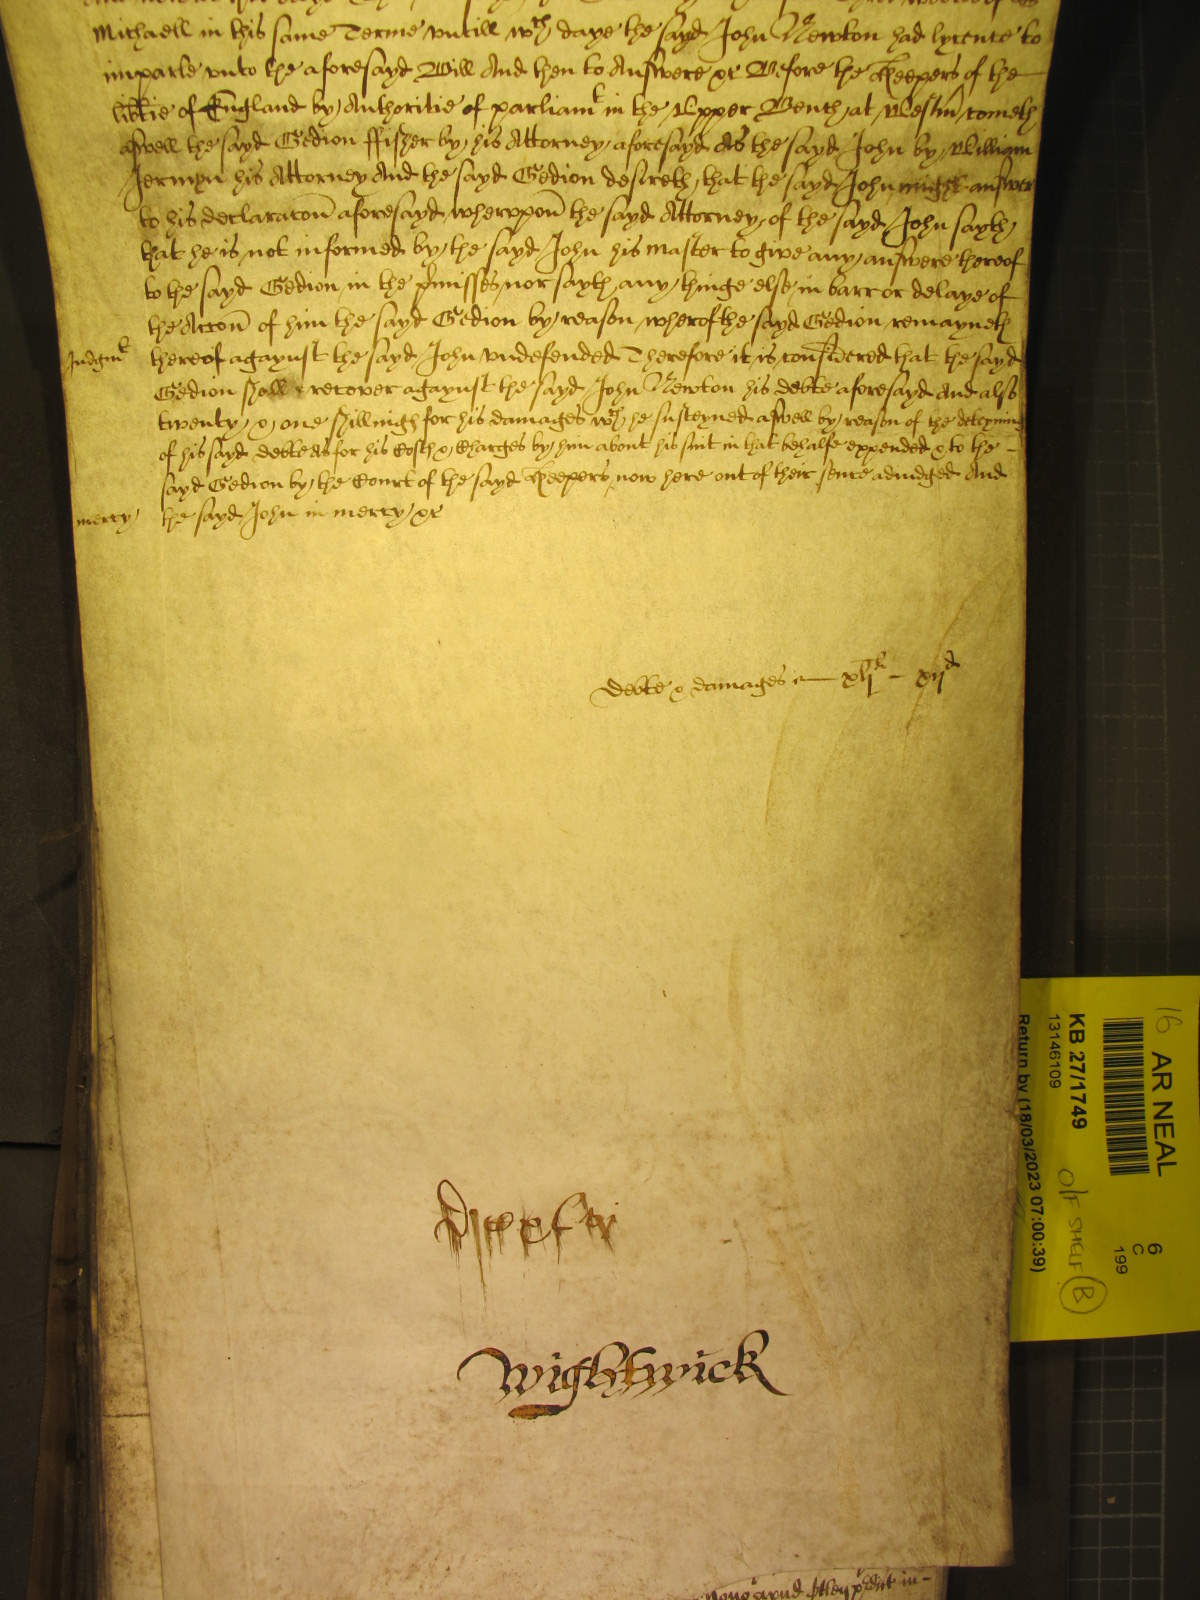 Michaell in this same Terme untill wch daye the sayd John Newton had lycence to
imparle unto the aforesayd Bill And then to Answere &c Before the Keepers of the
lib'tie of England by Authoritie of parliamt in the Upper Bench at Westm' cometh
aswell the sayd Gedion ffisher by his Attorney aforesayd As the sayd John by William
Jermyn his Attorney And the sayd Gedion desireth that the sayd John might answer
to his declaracon aforesayd wheruppon the sayd Attorney of the sayd John sayth
that he is not informed by the sayd John his master to give any answere thereof
to the sayd Gedion in the p'misses nor sayth any thinge else in barr or delaye of
the Accon of him the sayd Gedion by reason wherof the sayd Gedion remayneth
Judgmt thereof agaynst the sayd John undefended Therefore it is considered that the sayd
Gedion shall recover agaynst the sayd John Newton his debte aforesayd And also
twenty & one shillings for his damages wch he susteyned aswell by reason of the deteyning
of his sayd debte as for his Costs & Charges by him about his suit in that behalfe expended & to the
sayd Gedion by the Court of the sayd Keepers now here out of their sence adiudged And
mercy the sayd John in mercy &c
debte & damages
Wightwick
16 AR NEAL
6
C
199
KB 27/1749
O/F SHELF B
13146109
Return by (18/03/2023 07:00:39)